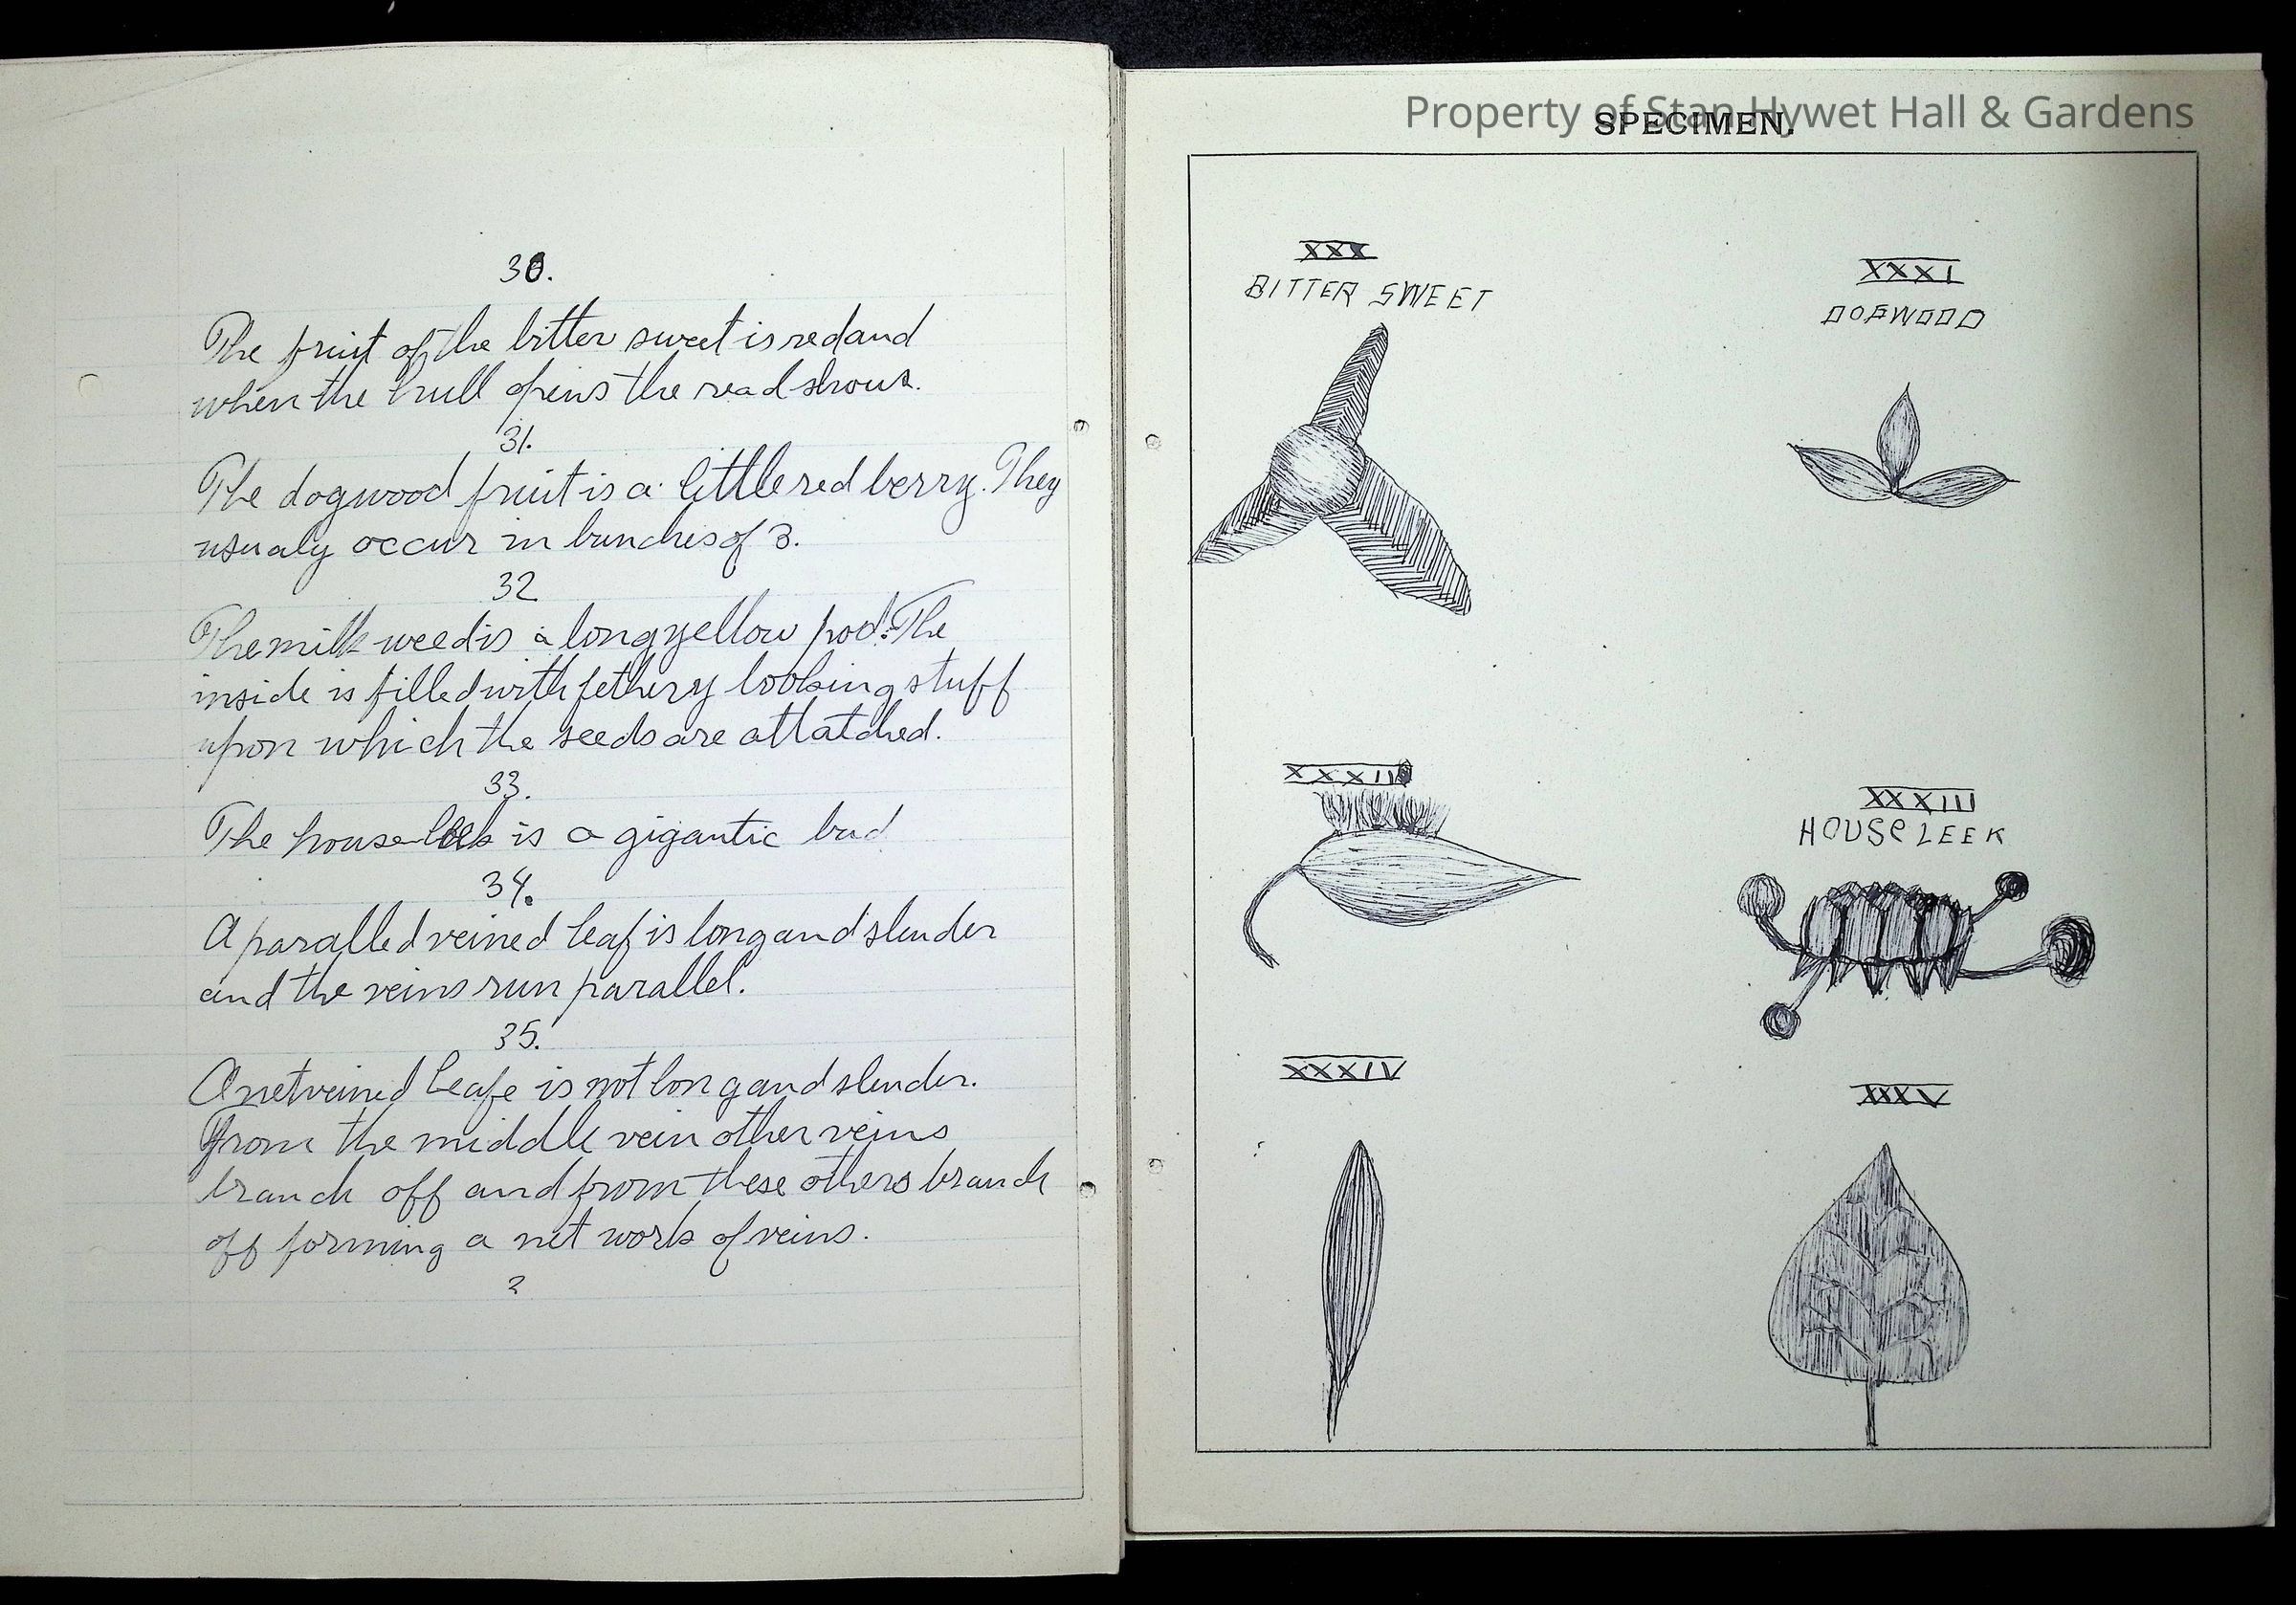 30.
The fruit of the bitter sweet is red and
when the hull opens the read shows.
31.
The dogwood fruit is a little red berry. They
usualy occur in bunches of 3.
32
The milk weed is a long yellow pod. The
inside is filled with fethery looking stuff
upon which the seeds are attatched.
33.
The house-leek is a gigantic bud
34.
A paralled veined leaf is long and slender
and the veins run parallel.
35.
A netveined leafe is not long and slender.
From the middle vein other veins
branch off and from these others branch
off forming a net work of veins.
?
Property of Stan Hywet Hall & Gardens
SPECIMEN.
XXX
BITTER SWEET
XXXI
DOGWOOD
XXXII
XXXIII
HOUSE LEEK
XXXIV
XXXV